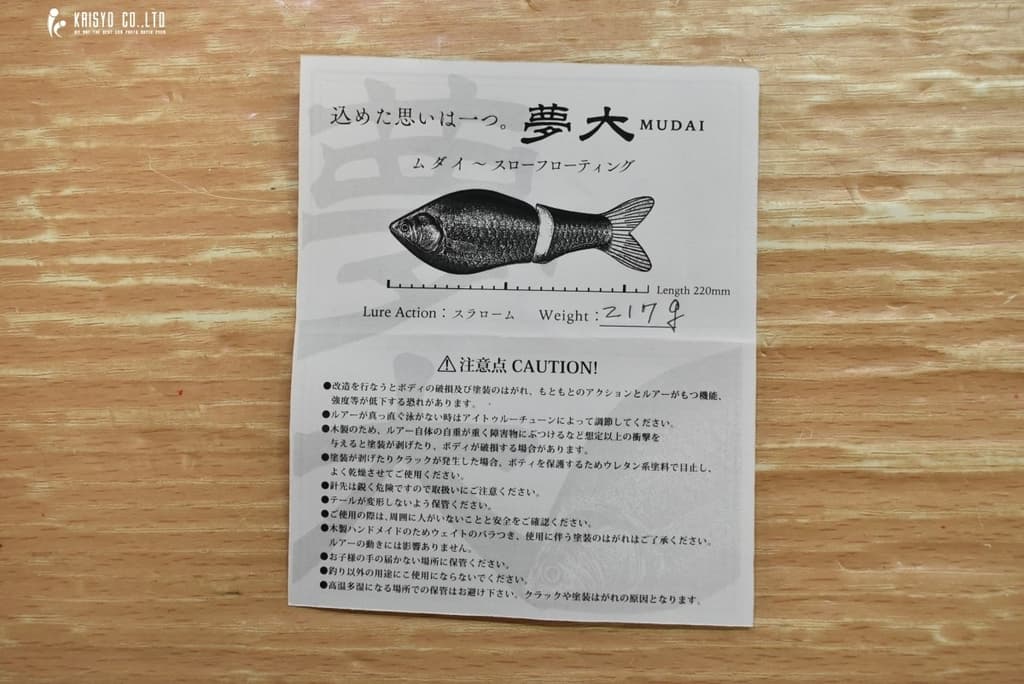 KAISYO CO.,LTD
込めた思いは一つ。 夢大 MUDAI
ムダイ～スローフローティング
Length 220mm
Lure Action：スラローム Weight：217g
⚠注意点 CAUTION!
●改造を行なうとボディの破損及び塗装のはがれ、もともとのアクションとルアーがもつ機能、
強度等が低下する恐れがあります。
●ルアーが真っ直ぐ泳がない時はアイトゥルーチューンによって調節してください。
●木製のため、ルアー自体の自重が重く障害物にぶつけるなど想定以上の衝撃を
与えると塗装が剥げたり、ボディが破損する場合があります。
●塗装が剥げたりクラックが発生した場合、ボティを保護するためウレタン系塗料で目止し、
よく乾燥させてご使用ください。
●針先は鋭く危険ですので取扱いにご注意ください。
●テールが変形しないよう保管ください。
●ご使用の際は、周囲に人がいないことと安全をご確認ください。
●木製ハンドメイドのためウェイトのバラつき、使用に伴う塗装のはがれはご了承ください。
ルアーの動きには影響ありません。
●お子様の手の届かない場所に保管ください。
●釣り以外の用途にご使用にならないでください。
●高温多湿になる場所での保管はお避け下さい。クラックや塗装はがれの原因となります。